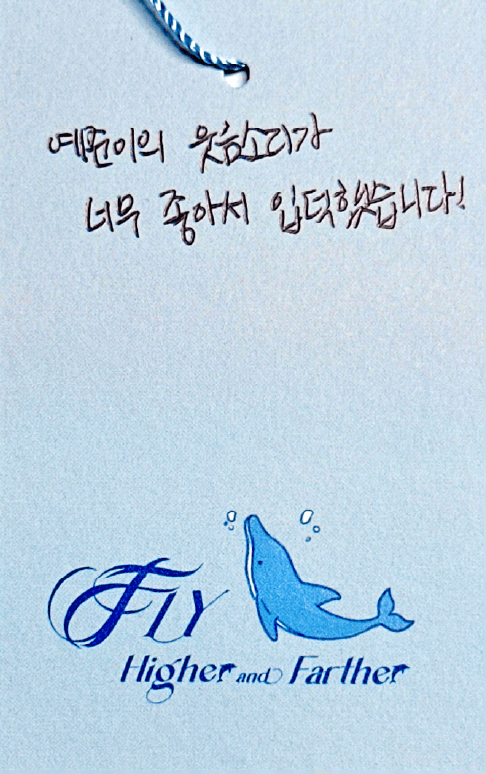 예뿐이의 웃음소리가
너무 좋아서 입덕했습니다!
FLY
Higher and Farther